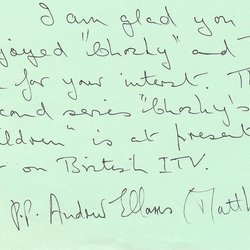 I am glad you
joyed "Ghosky" and T
for your interest. Th
cond series "Ghosky's
ildren" is at present
on British ITV.
p.p. Andrew Ellams (Matth